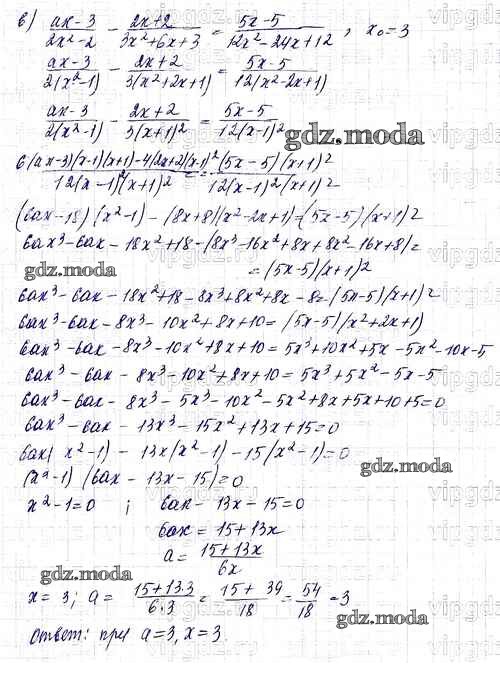 в) (ax-3)/(2x²-2) - (2x+2)/(3x²+6x+3) = (5x-5)/(12x²-24x+12) ; x₀=3
(ax-3)/(2(x²-1)) - (2x+2)/(3(x²+2x+1)) = (5x-5)/(12(x²-2x+1))
(ax-3)/(2(x²-1)) - (2x+2)/(3(x+1)²) = (5x-5)/(12(x-1)²)
gdz.moda
(6(ax-3)(x-1)(x+1)-4(2x+2)(x-1)²)/(12(x-1)²(x+1)²) = ((5x-5)(x+1)²)/(12(x-1)²(x+1)²)
(6ax-18)(x²-1) - (8x+8)(x²-2x+1)=(5x-5)(x+1)²
6ax³-6ax-18x²+18-(8x³-16x²+8x+8x²-16x+8)=
=(5x-5)(x+1)²
gdz.moda
6ax³-6ax-18x²+18-8x³+8x²+8x-8=(5x-5)(x+1)²
6ax³-6ax-8x³-10x²+8x+10=(5x-5)(x²+2x+1)
6ax³-6ax-8x³-10x²+8x+10=5x³+10x²+5x-5x²-10x-5
6ax³-6ax-8x³-10x²+8x+10=5x³+5x²-5x-5
6ax³-6ax-8x³-5x³-10x²-5x²+8x+5x+10+5=0
6ax³-6ax-13x³-15x²+13x+15=0
6ax(x²-1)-13x(x²-1)-15(x²-1)=0
gdz.moda
(x²-1)(6ax-13x-15)=0
x²-1=0 ; 6ax-13x-15=0
6ax=15+13x
a=(15+13x)/(6x)
gdz.moda
x=3; a=(15+13·3)/(6·3)=(15+39)/18=54/18=3
gdz.moda
Ответ: при a=3, x=3.
vipgdz.ru